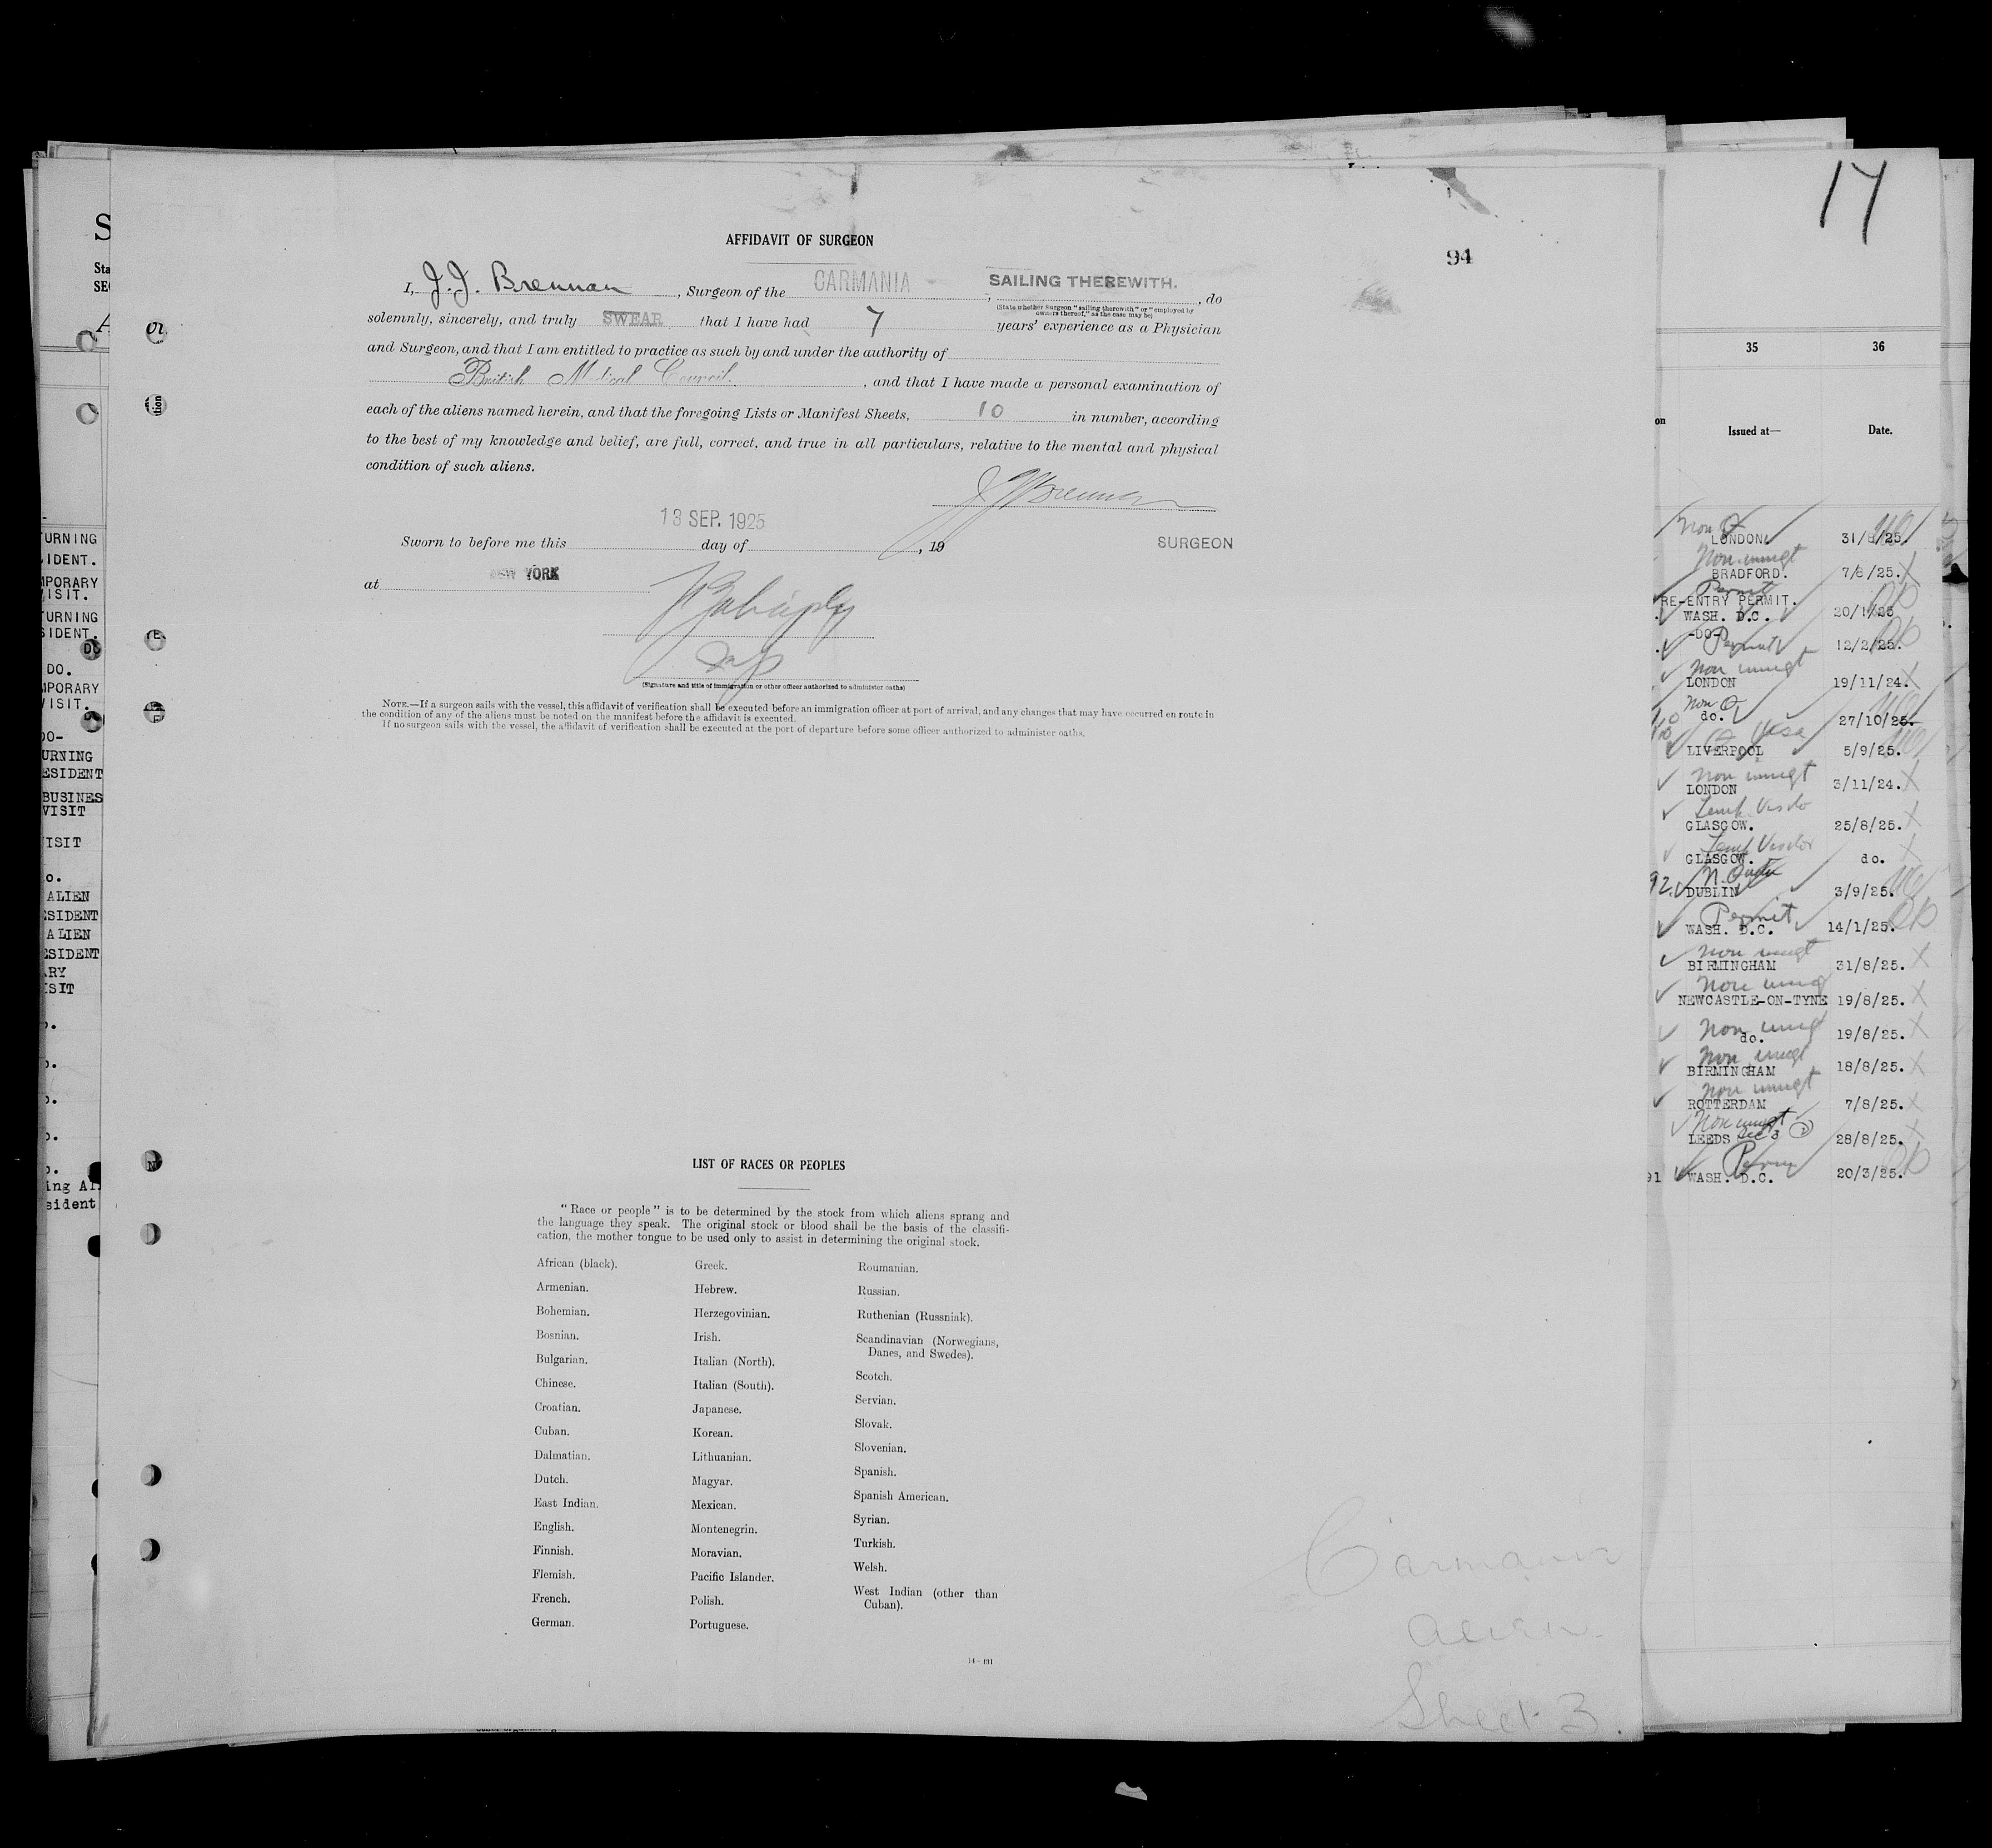 17
94
AFFIDAVIT OF SURGEON
I, J. J. Brennan, Surgeon of the CARMANIA, SAILING THEREWITH., do
(State whether Surgeon "sailing therewith" or "employed by
owners thereof," as the case may be)
solemnly, sincerely, and truly SWEAR that I have had 7 years' experience as a Physician
and Surgeon, and that I am entitled to practice as such by and under the authority of
British Medical Council, and that I have made a personal examination of
each of the aliens named herein, and that the foregoing Lists or Manifest Sheets, 10 in number, according
to the best of my knowledge and belief, are full, correct, and true in all particulars, relative to the mental and physical
condition of such aliens.
J J Brennan
13 SEP. 1925
Sworn to before me this day of , 19 SURGEON
at NEW YORK
(Signature and title of immigration or other officer authorized to administer oaths)
NOTE.—If a surgeon sails with the vessel, this affidavit of verification shall be executed before an immigration officer at port of arrival, and any changes that may have occurred en route in
the condition of any of the aliens must be noted on the manifest before the affidavit is executed.
If no surgeon sails with the vessel, the affidavit of verification shall be executed at the port of departure before some officer authorized to administer oaths.
LIST OF RACES OR PEOPLES
"Race or people" is to be determined by the stock from which aliens sprang and
the language they speak. The original stock or blood shall be the basis of the classifi-
cation, the mother tongue to be used only to assist in determining the original stock.
African (black).
Armenian.
Bohemian.
Bosnian.
Bulgarian.
Chinese.
Croatian.
Cuban.
Dalmatian.
Dutch.
East Indian.
English.
Finnish.
Flemish.
French.
German.
Greek.
Hebrew.
Herzegovinian.
Irish.
Italian (North).
Italian (South).
Japanese.
Korean.
Lithuanian.
Magyar.
Mexican.
Montenegrin.
Moravian.
Pacific Islander.
Polish.
Portuguese.
Roumanian.
Russian.
Ruthenian (Russniak).
Scandinavian (Norwegians,
Danes, and Swedes).
Scotch.
Servian.
Slovak.
Slovenian.
Spanish.
Spanish American.
Syrian.
Turkish.
Welsh.
West Indian (other than
Cuban).
Carmania
Alien
Sheet 3.
35 36
Issued at— Date.
Non Q
LONDON 31/8/25.
Non immgt
BRADFORD. 7/8/25.
Permit
RE-ENTRY PERMIT.
WASH. D.C. 20/1/25
-DO- Permit 12/2/25.
Non immgt
LONDON 19/11/24.
Non Q
do. 27/10/25.
Q Visa
LIVERPOOL 5/9/25.
Non immgt
LONDON 3/11/24.
Temp Visitor
GLASGOW. 25/8/25.
Temp Visitor
GLASGOW. do.
DUBLIN 3/9/25.
Permit
WASH. D.C. 14/1/25.
Non immgt
BIRMINGHAM 31/8/25.
Non immg
NEWCASTLE-ON-TYNE 19/8/25.
Non immgt
do. 19/8/25.
Non immgt
BIRMINGHAM 18/8/25.
Non immgt
ROTTERDAM 7/8/25.
Non immgt
LEEDS Sec 3 28/8/25.
WASH. D.C. 20/3/25.